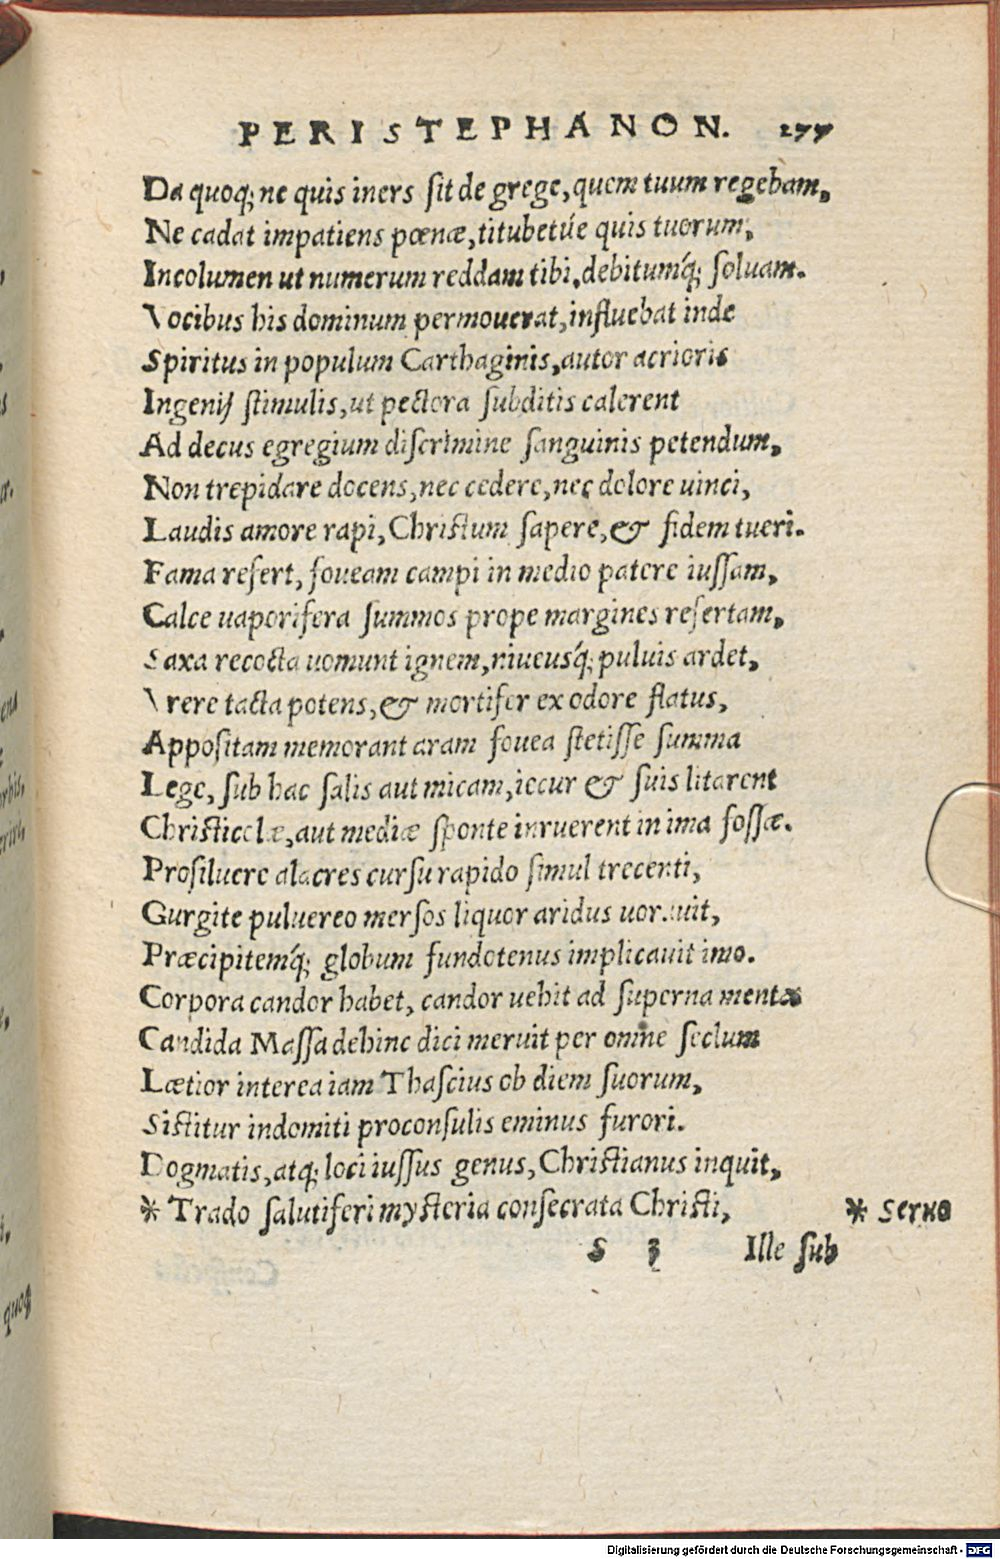 PERISTEPHANON. 277
Da quoq; ne quis iners sit de grege, quem tuum regebam,
Ne cadat impatiens pœnæ, titubetúe quis tuorum,
Incolumen ut numerum reddam tibi, debitumq́; soluam.
Vocibus his dominum permouerat, influebat inde
Spiritus in populum Carthaginis, autor acrioris
Ingenij stimulis, ut pectora subditis calerent
Ad decus egregium discrimine sanguinis petendum,
Non trepidare docens, nec cedere, nec dolore uinci,
Laudis amore rapi, Christum sapere, & fidem tueri.
Fama refert, foueam campi in medio patere iussam,
Calce uaporifera summos prope margines refertam,
Saxa recocta uomunt ignem, niueusq́; puluis ardet,
Vrere tacta potens, & mortifer ex odore flatus,
Appositam memorant aram fouea stetisse summa
Lege, sub hac salis aut micam, iecur & suis litarent
Christicolæ, aut mediæ sponte inruerent in ima fossæ.
Prosiluere alacres cursu rapido simul trecenti,
Gurgite puluereo mersos liquor aridus uorauit,
Præcipitemq́; globum fundotenus implicauit imo.
Corpora candor habet, candor uehit ad superna mentes
Candida Massa dehinc dici meruit per omne seclum
Lætior interea iam Thascius ob diem suorum,
Sistitur indomiti proconsulis eminus furori.
Dogmatis, atq; loci iussus genus, Christianus inquit,
* Trado salutiferi mysteria consecrata Christi, * Seruo
S 3 Ille sub
quoq
Digitalisierung gefördert durch die Deutsche Forschungsgemeinschaft - DFG